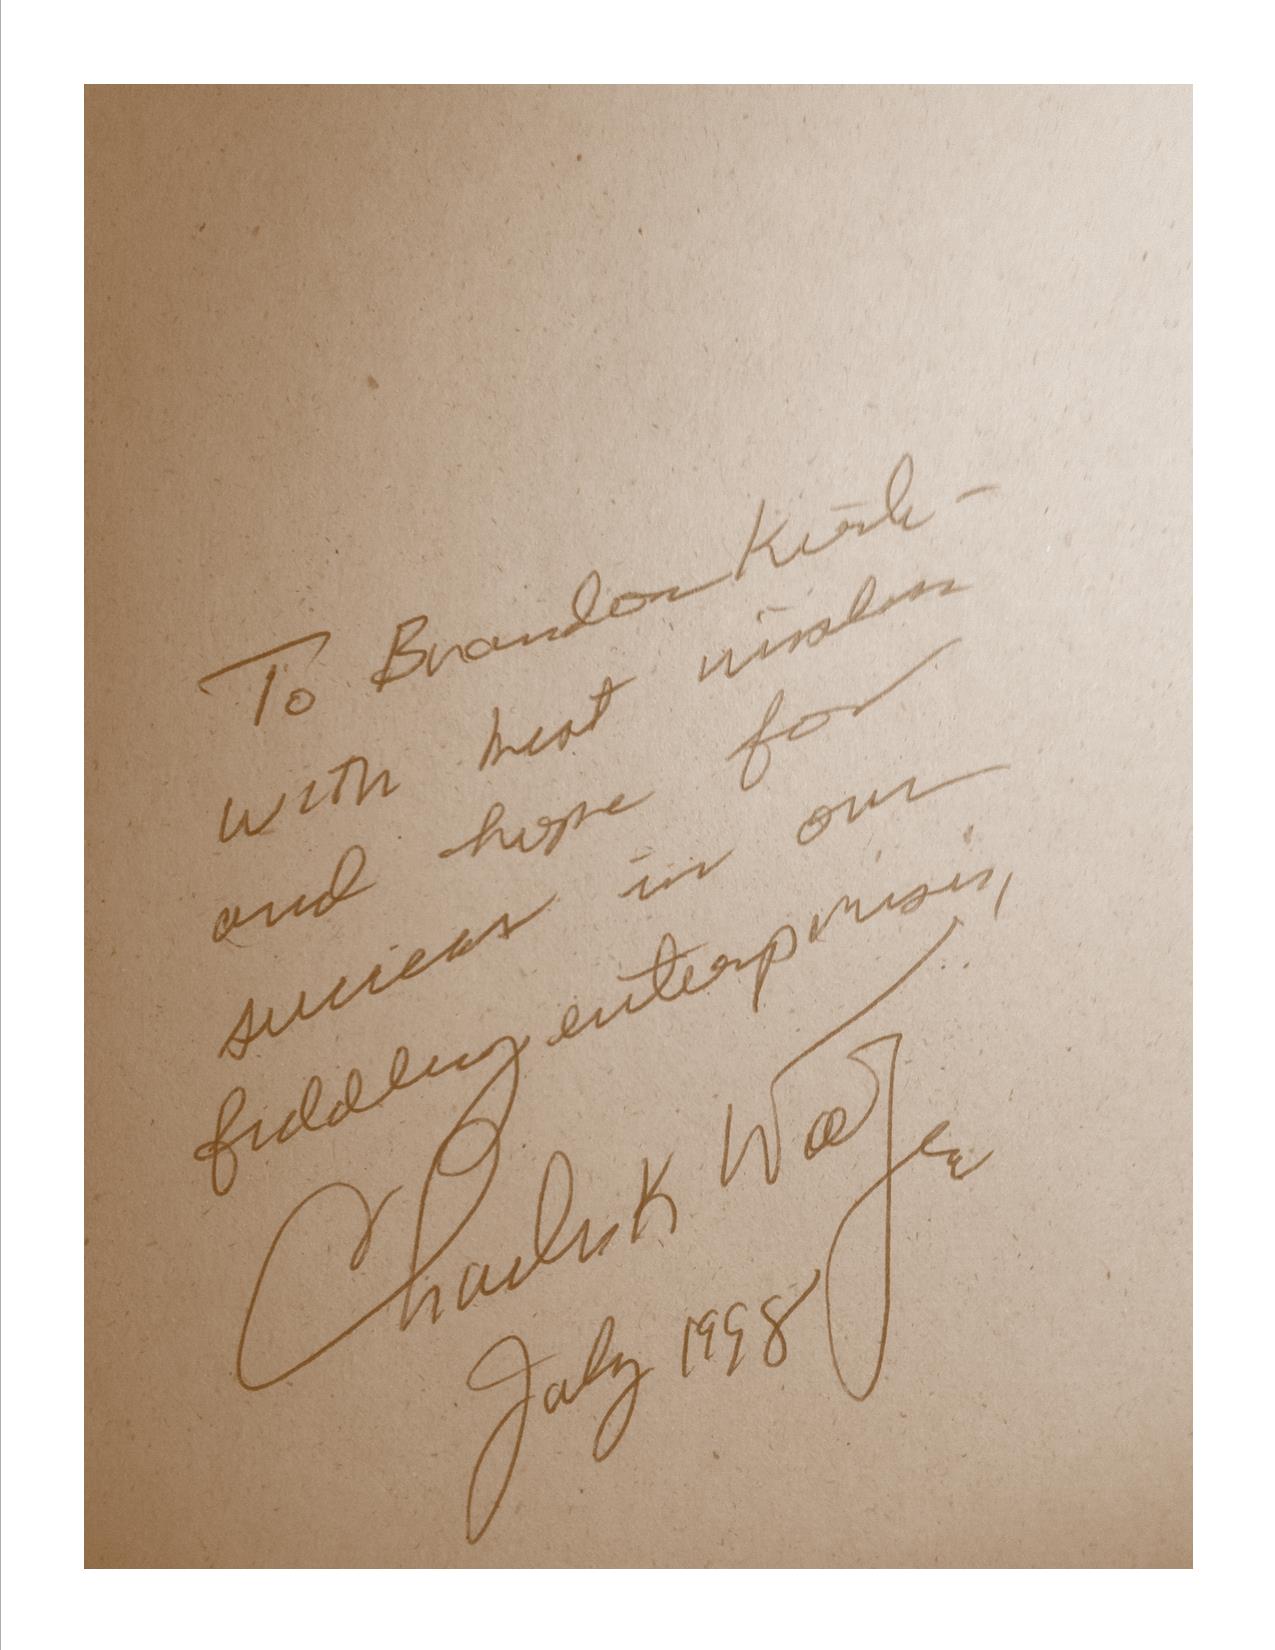 To Brandon Kirk -
with best wishes
and hope for
success in our
fiddling enterprises,
Charles K Wolfe
July 1998